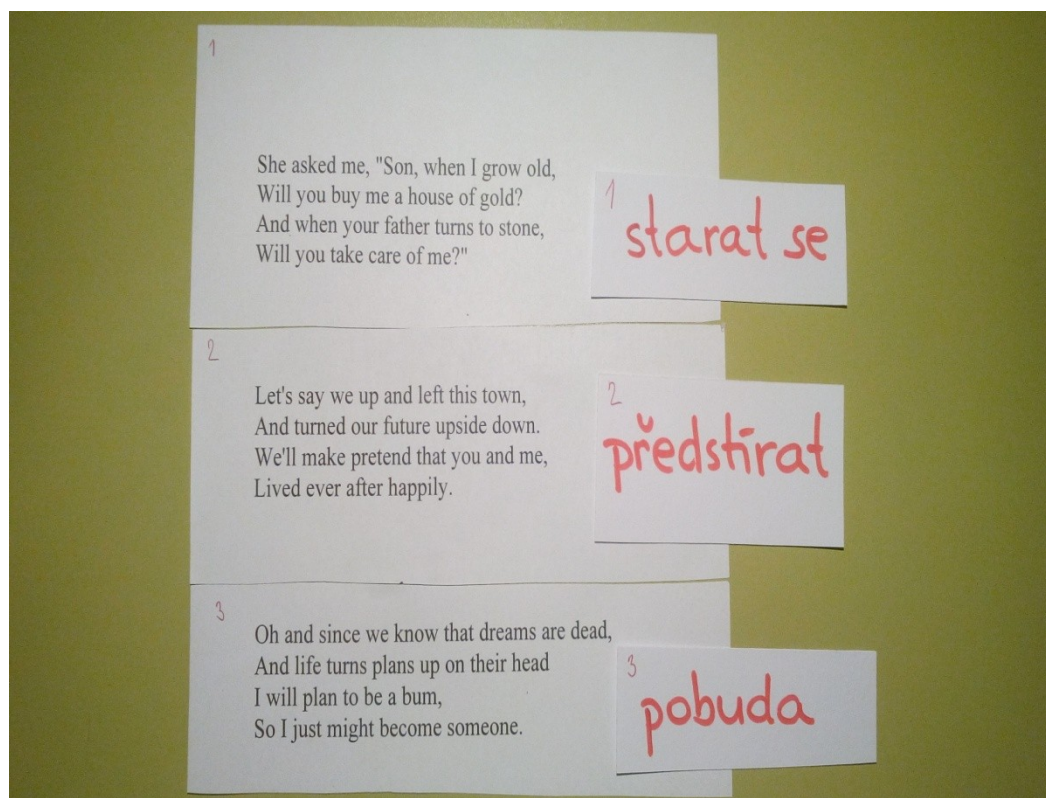 1
She asked me, "Son, when I grow old,
Will you buy me a house of gold?
And when your father turns to stone,
Will you take care of me?"
1
starat se
2
Let's say we up and left this town,
And turned our future upside down.
We'll make pretend that you and me,
Lived ever after happily.
2
předstírat
3
Oh and since we know that dreams are dead,
And life turns plans up on their head
I will plan to be a bum,
So I just might become someone.
3
pobuda